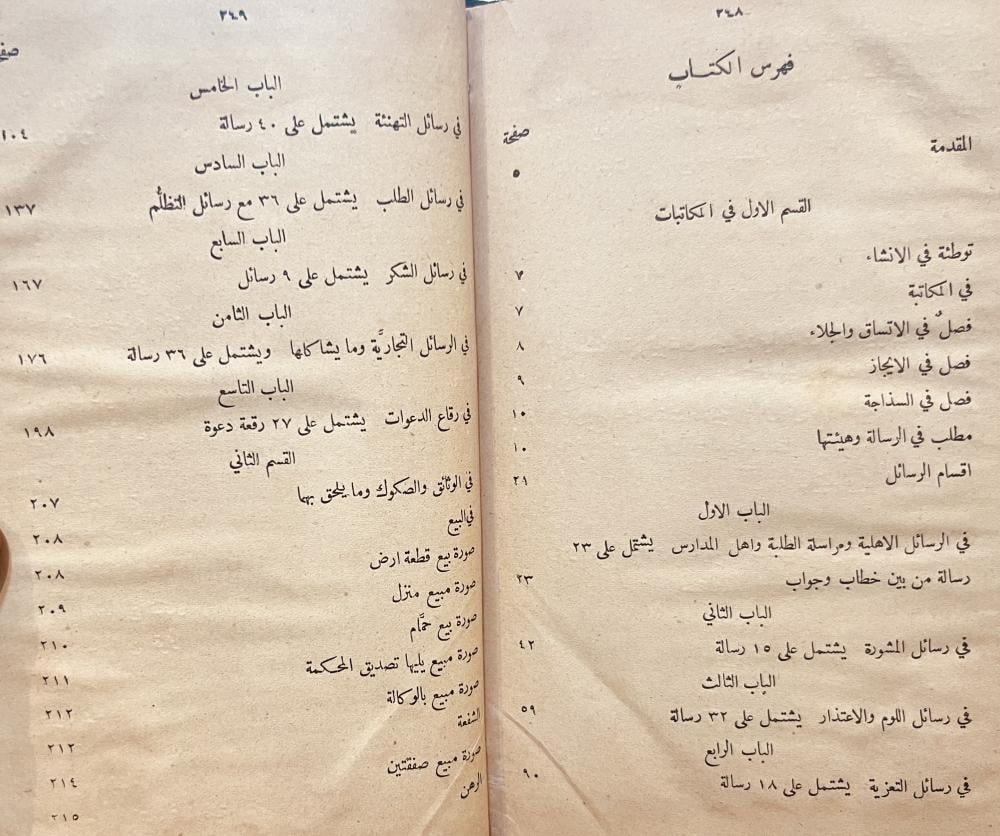 ٣٤٨
فهرس الكتاب
صفحة
المقدمة ٥
القسم الاول في المكاتبات
توطئة في الانشاء ٧
في المكاتبة ٧
فصلٌ في الاتساق والجلاء ٨
فصل في الايجاز ٩
فصل في السذاجة ١٠
مطلب في الرسالة وهيئتها ١٠
اقسام الرسائل ٢١
الباب الاول
في الرسائل الاهلية ومراسلة الطلبة واهل المدارس يشتمل على ٢٣
رسالة من بين خطاب وجواب ٢٣
الباب الثاني
في رسائل المشورة يشتمل على ١٥ رسالة ٤٢
الباب الثالث
في رسائل اللوم والاعتذار يشتمل على ٣٢ رسالة ٥٩
الباب الرابع
في رسائل التعزية يشتمل على ١٨ رسالة ٩٠
٣٤٩
الباب الخامس
في رسائل التهنئة يشتمل على ٤٠ رسالة ١٠٤
الباب السادس
في رسائل الطلب يشتمل على ٣٦ مع رسائل التظلُّم ١٣٧
الباب السابع
في رسائل الشكر يشتمل على ٩ رسائل ١٦٧
الباب الثامن
في الرسائل التجاريَّة وما يشاكلها ويشتمل على ٣٦ رسالة ١٧٦
الباب التاسع
في رقاع الدعوات يشتمل على ٢٧ رقعة دعوة ١٩٨
القسم الثاني
في الوثائق والصكوك وما يلحق بها ٢٠٧
في البيع ٢٠٨
صورة بيع قطعة ارض ٢٠٨
صورة مبيع منزل ٢٠٩
صورة بيع حمَّام ٢١٠
صورة مبيع يليها تصديق المحكمة ٢١١
صورة مبيع بالوكالة ٢١٢
الشفعة ٢١٢
صورة مبيع صفقتين ٢١٤
الرهن ٢١٥